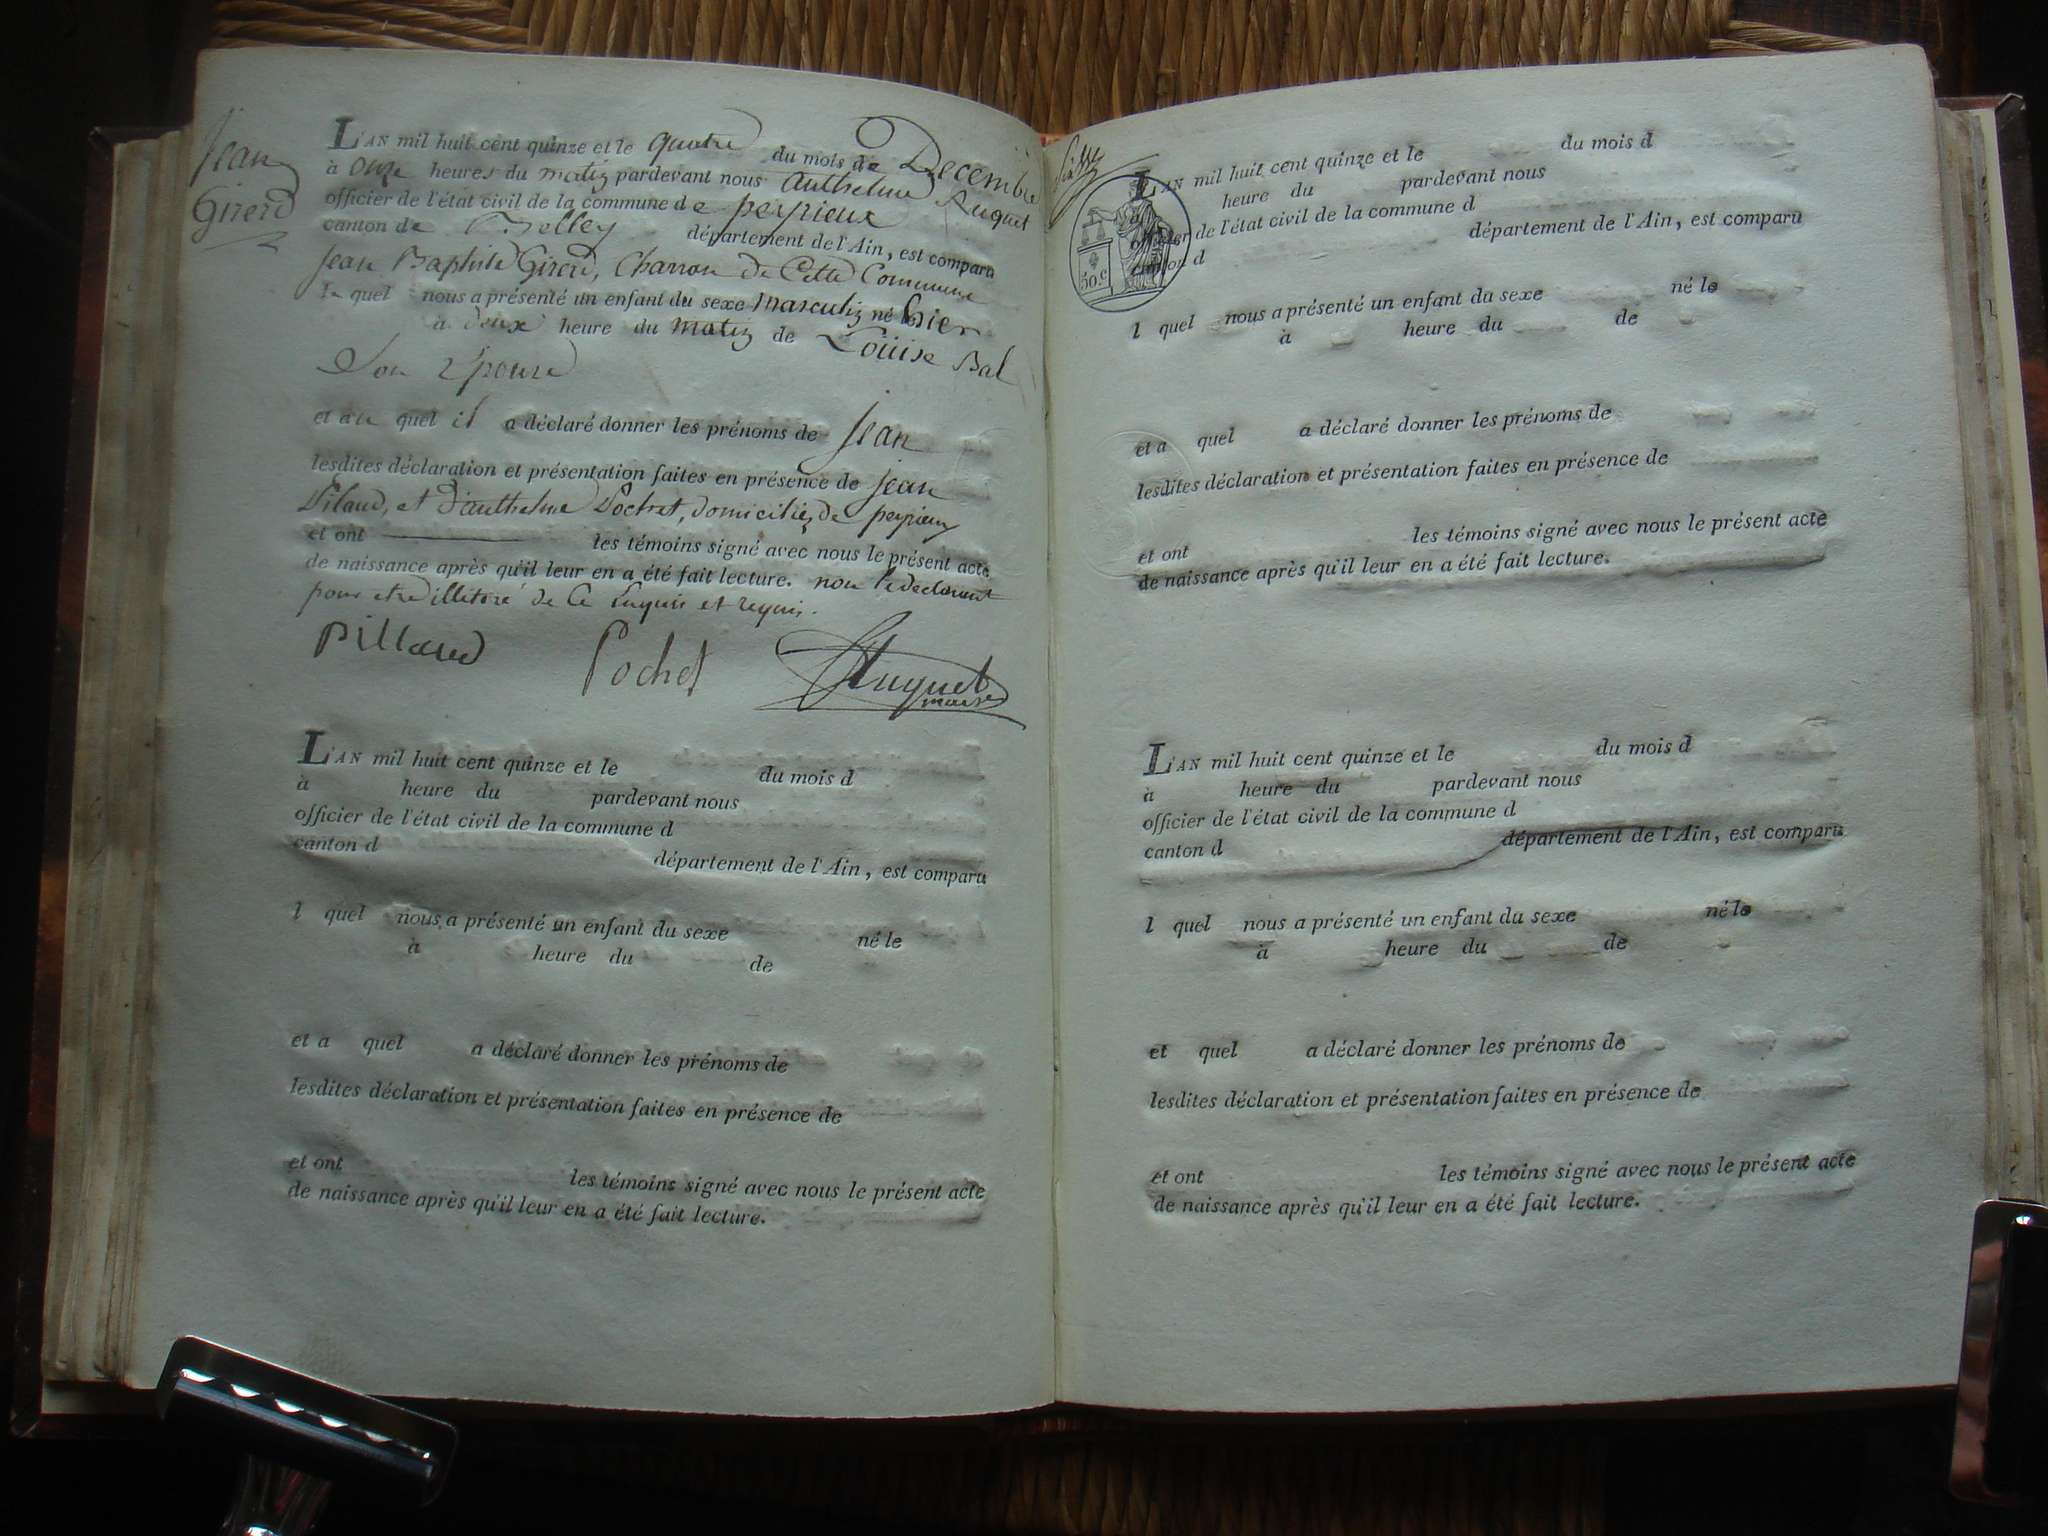 Jean
Girerd
L'AN mil huit cent quinze et le quatre du mois de Decembre
à onze heures du matin pardevant nous Anthelme Auguet
officier de l'état civil de la commune de peyrieux
canton de Belley département de l'Ain, est comparu
Jean Baptiste Girerd, Charron de Cette Commune
le quel nous a présenté un enfant du sexe masculin né hier
à deux heure du matin de Louise Bal
Son Epouse
et au quel il a déclaré donner les prénoms de Jean
lesdites déclaration et présentation faites en présence de Jean
Pilaud, et d'anthelme Pochet, domiciliés de peyrieux
et ont les témoins signé avec nous le présent acte
de naissance après qu'il leur en a été fait lecture. non le declarant
pour etre illitoré de Ce Enquis et requis.
Pillaud Pochet Auguet
maire
L'AN mil huit cent quinze et le du mois d
à heure du pardevant nous
officier de l'état civil de la commune d
canton d département de l'Ain, est comparu
l quel nous a présenté un enfant du sexe né le
à heure du de
et a quel a déclaré donner les prénoms de
lesdites déclaration et présentation faites en présence de
et ont les témoins signé avec nous le présent acte
de naissance après qu'il leur en a été fait lecture.
L'AN mil huit cent quinze et le du mois d
à heure du pardevant nous
officier de l'état civil de la commune d
canton d département de l'Ain, est comparu
50.c
l quel nous a présenté un enfant du sexe né le
à heure du de
et a quel a déclaré donner les prénoms de
lesdites déclaration et présentation faites en présence de
et ont les témoins signé avec nous le présent acte
de naissance après qu'il leur en a été fait lecture.
L'AN mil huit cent quinze et le du mois d
à heure du pardevant nous
officier de l'état civil de la commune d
canton d département de l'Ain, est comparu
l quel nous a présenté un enfant du sexe né le
à heure du de
et quel a déclaré donner les prénoms de
lesdites déclaration et présentation faites en présence de
et ont les témoins signé avec nous le présent acte
de naissance après qu'il leur en a été fait lecture.